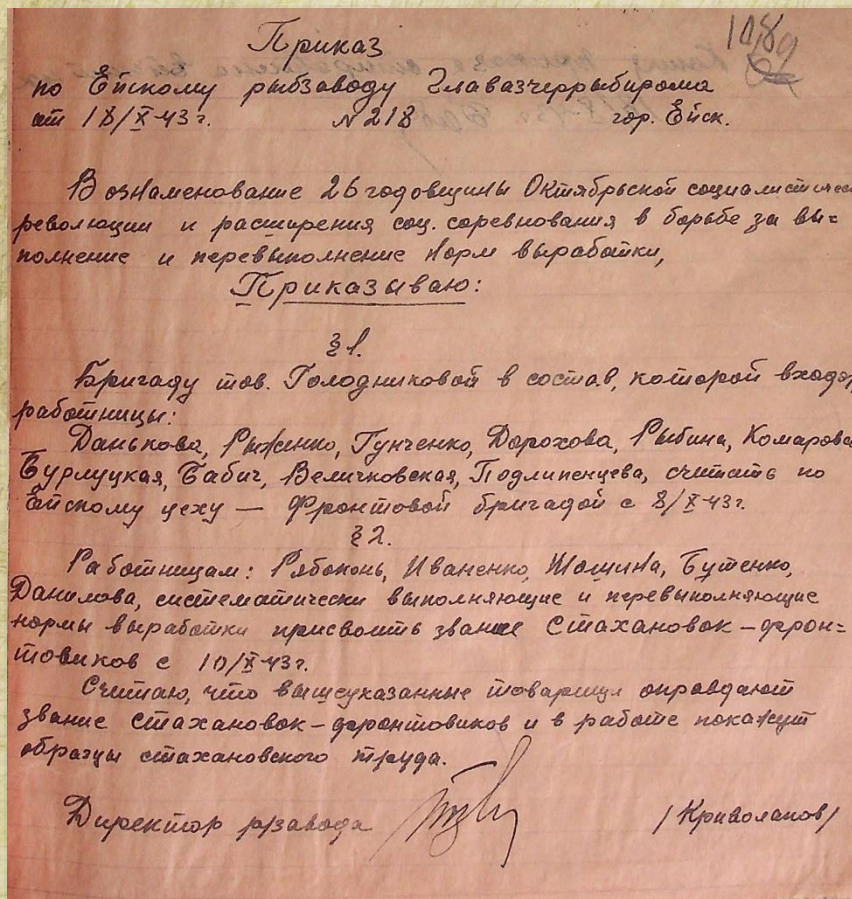 1089
Приказ
по Ейскому рыбзаводу Главазчеррыбпрома
от 18/X-43 г. № 218 гор. Ейск.
В ознаменование 26 годовщины Октябрьской социалистическ
революции и расширения соц. соревнования в борьбе за вы=
полнение и перевыполнение норм выработки,
Приказываю:
§ 1.
Бригаду тов. Голодниковой в состав, которой входят
работницы:
Данькова, Рыженко, Гунченко, Дорохова, Рыбина, Комаровс
Бурлуцкая, Бабич, Величковская, Подлипенцева, считать по
Ейскому цеху — Фронтовой бригадой с 8/X-43г.
§ 2.
Работницам: Рябоконь, Иваненко, Бутенко,
Данилова, систематически выполняющие и перевыполняющие
нормы выработки присвоить звание Стахановок-фрон=
товиков с 10/X-43г.
Считаю, что вышеуказанные товарищи оправдают
звание Стахановок-фронтовиков и в работе покажут
образцы стахановского труда.
Директор р/завода /Криволапов/